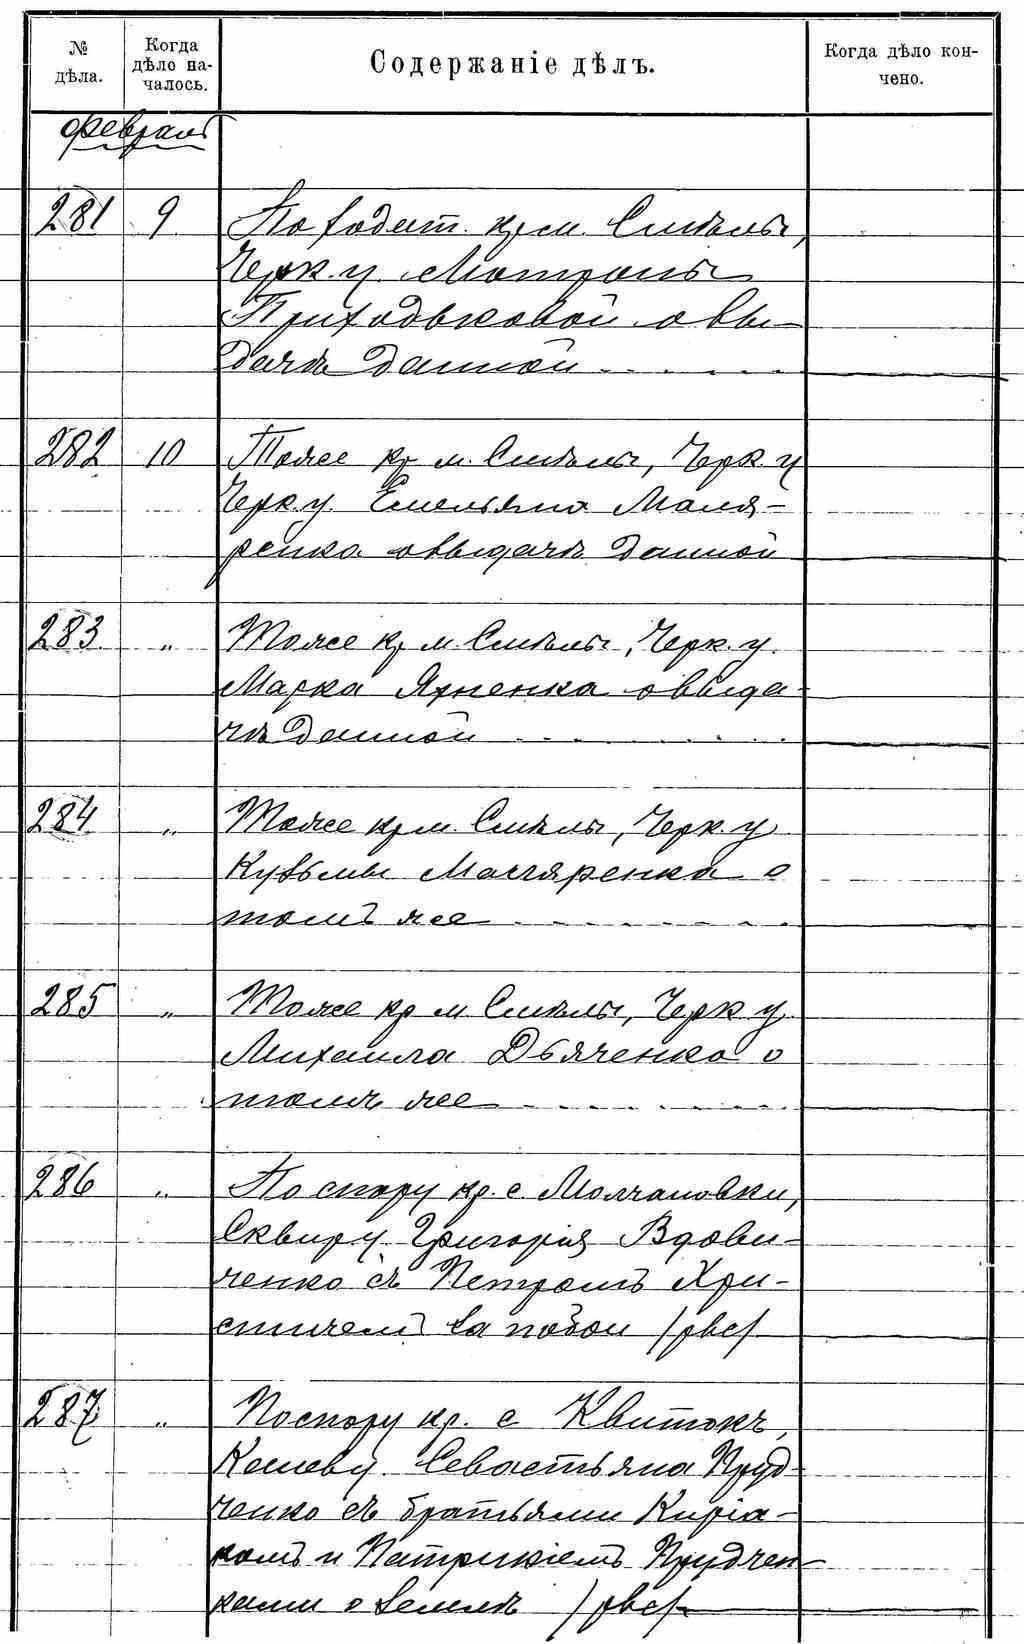 № дѣла.
Когда дѣло началось.
Содержаніе дѣлъ.
Когда дѣло кончено.
Февраль
281 9 По ходат. кр. м. Смѣлы,
Черк. у. Мотроны
Приходьковой о вы-
дачѣ данной
282 10 Тоже кр м. Смѣлы, Черк. у
Черк. у. Емельяна Маля-
ренка о выдачѣ данной
283 „ Тоже кр м. Смѣлы, Черк. у.
Марка Яхненка о выда-
чѣ данной
284 „ Тоже кр м. Смѣлы, Черк. у
Кузьмы Маляренка о
томъ же
285 „ Тоже кр м Смѣлы, Черк. у.
Михаила Дьяченко о
томъ же
286 „ По спору кр. с. Молчановки,
Сквир у. Григорія Вдови-
ченко съ Петромъ Хри-
стичемъ за побои
287 „ По спору кр. с Квитокъ,
Каневу. Севастьяна Пруд-
ченко съ братьями Кирія-
комъ и Патрикіемъ Прудчен-
ками о землѣ